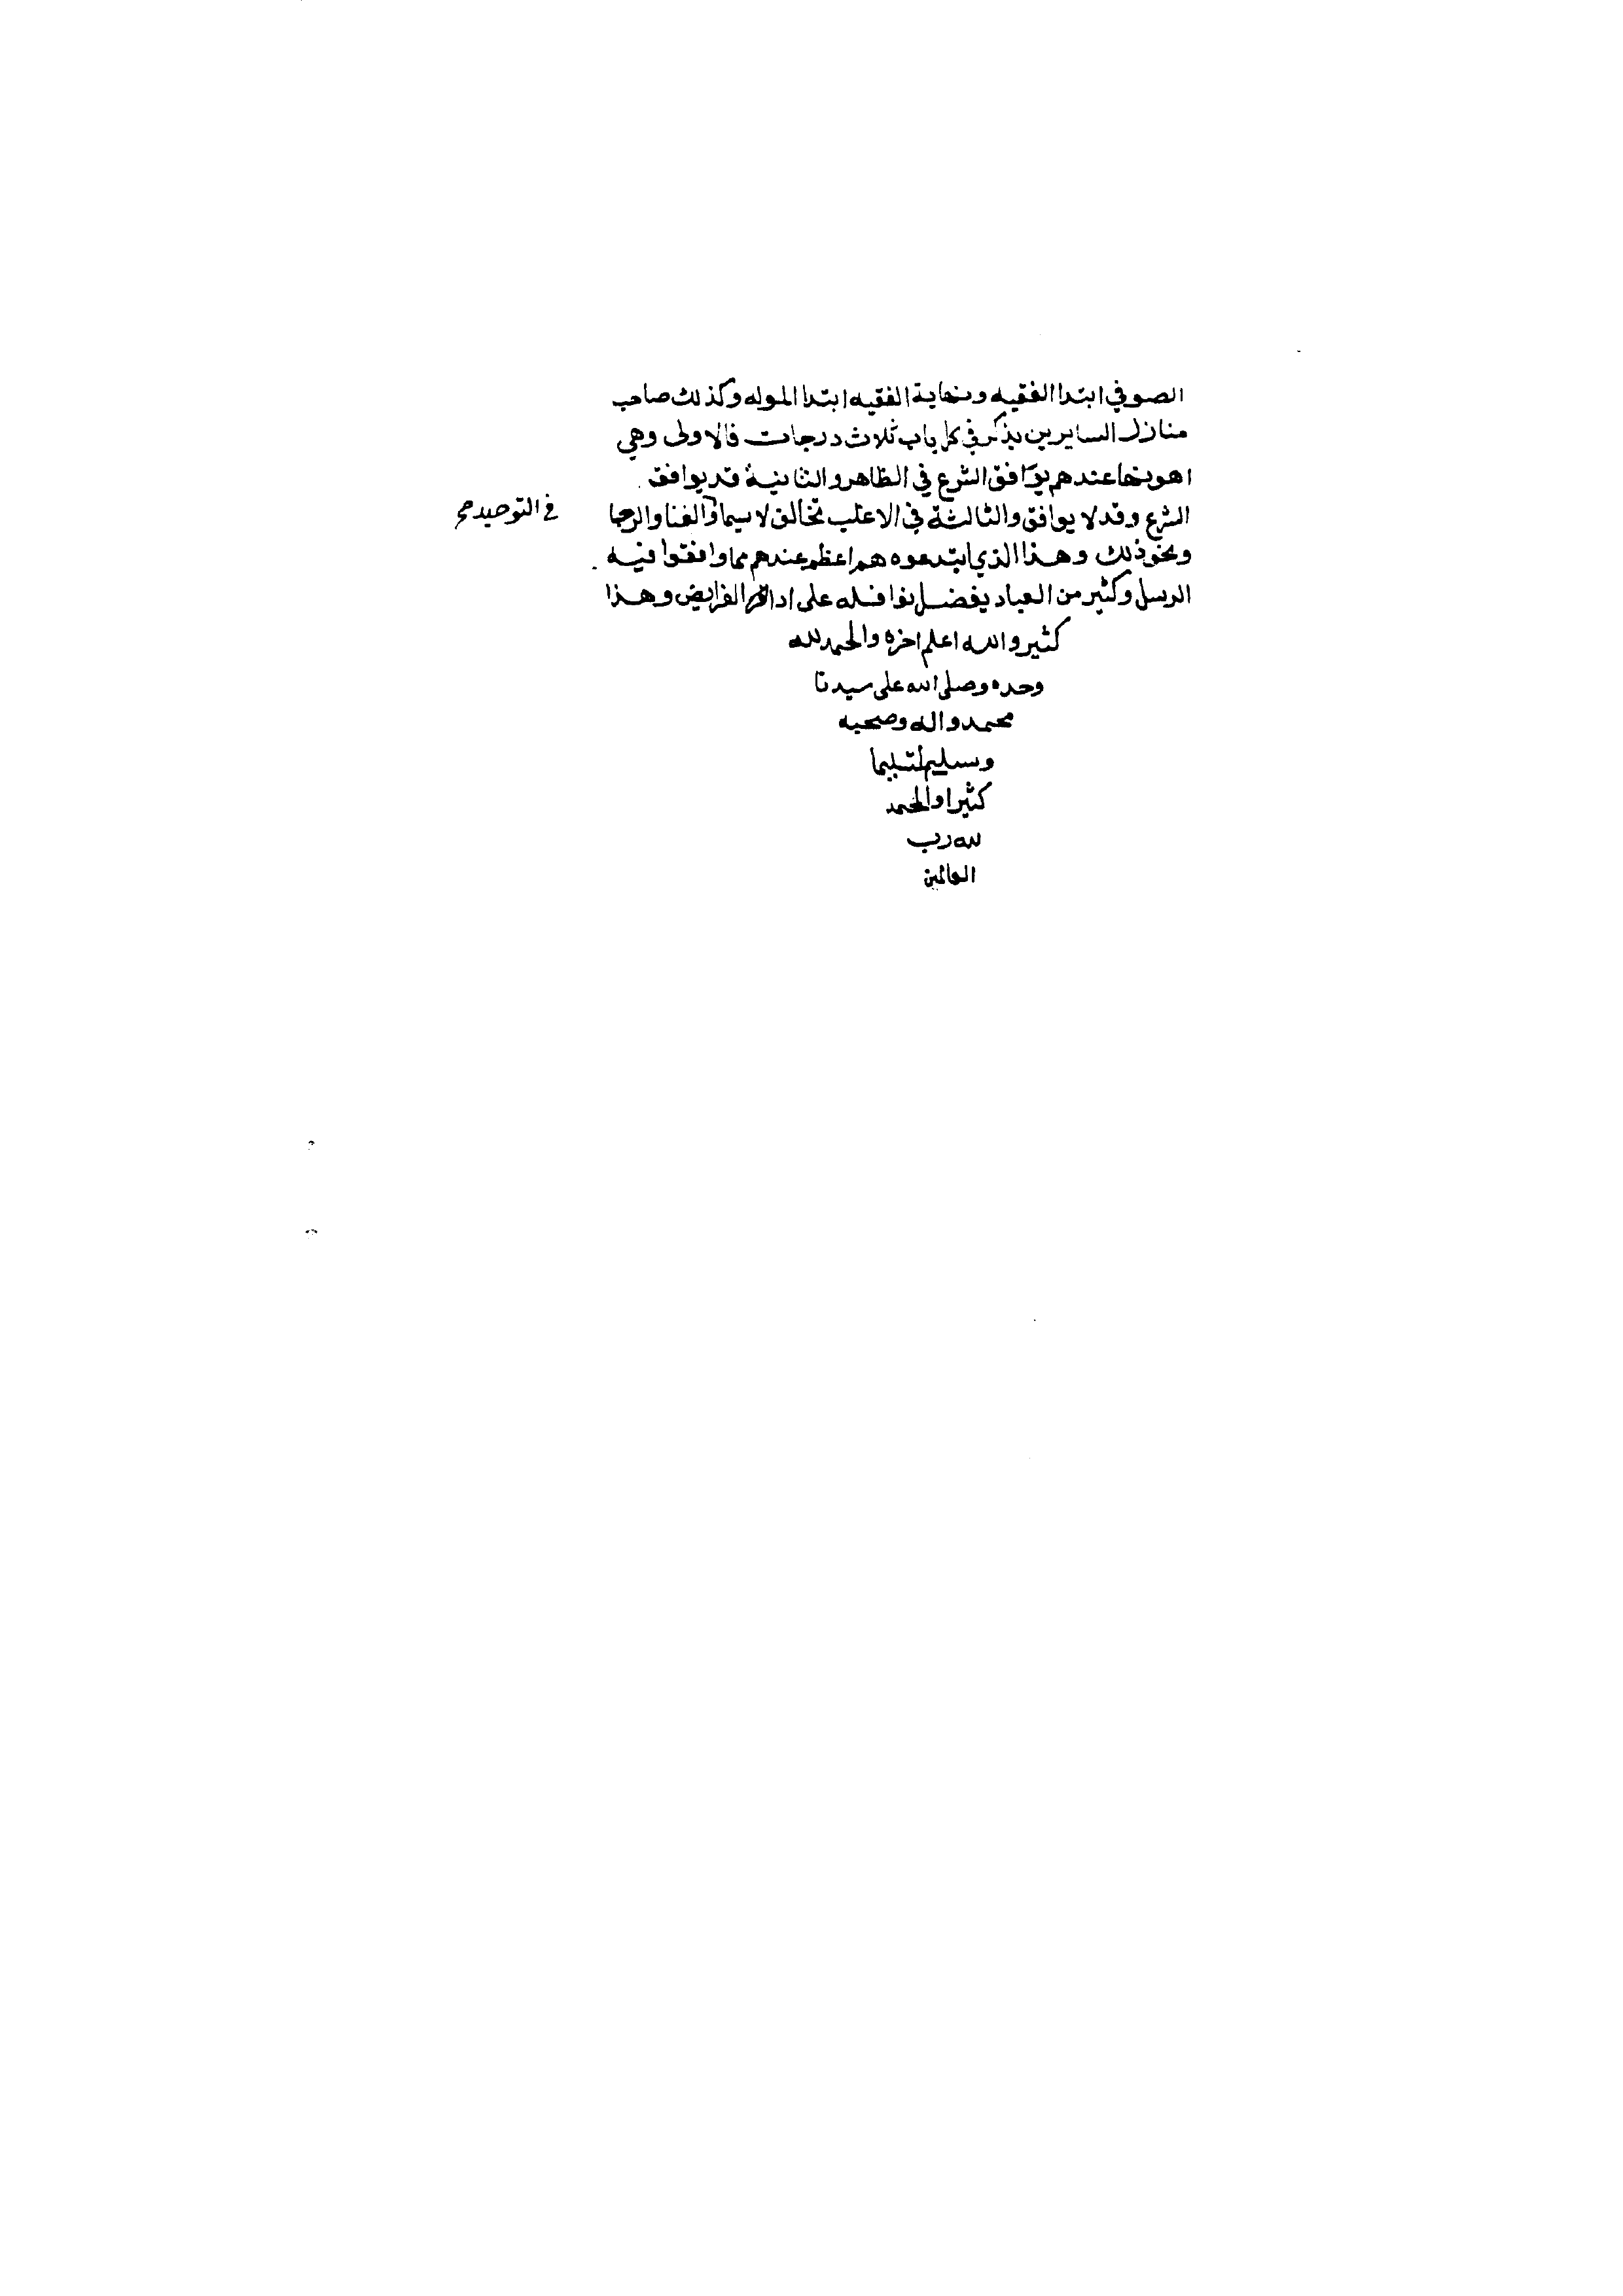 الصوفي ابتدا الفقيه ونهاية الفقيه ابتدا الموله وكذلك صاحب
منازل السايرين يذكر في كل باب ثلاث درجات فالاولى وهي
اهونها عندهم يوافق الشرع في الظاهر والثانية قد يوافق
الشرع وقد لا يوافق والثالثة في الاغلب تخالف لا سيما والفنا والرجا
في التوحيد صح
ونحو ذلك وهذا الذي ابتدعوه هم اعظم عندهم مما وافقوا فيه
الرسل وكثير من العباد يفضل نوافله على ادا الفرايض وهذا
كثير والله اعلم اخره والحمد لله
وحده وصلى الله على سيدنا
محمد واله وصحبه
وسلم تسليما
كثيرا والحمد
لله رب
العالمين